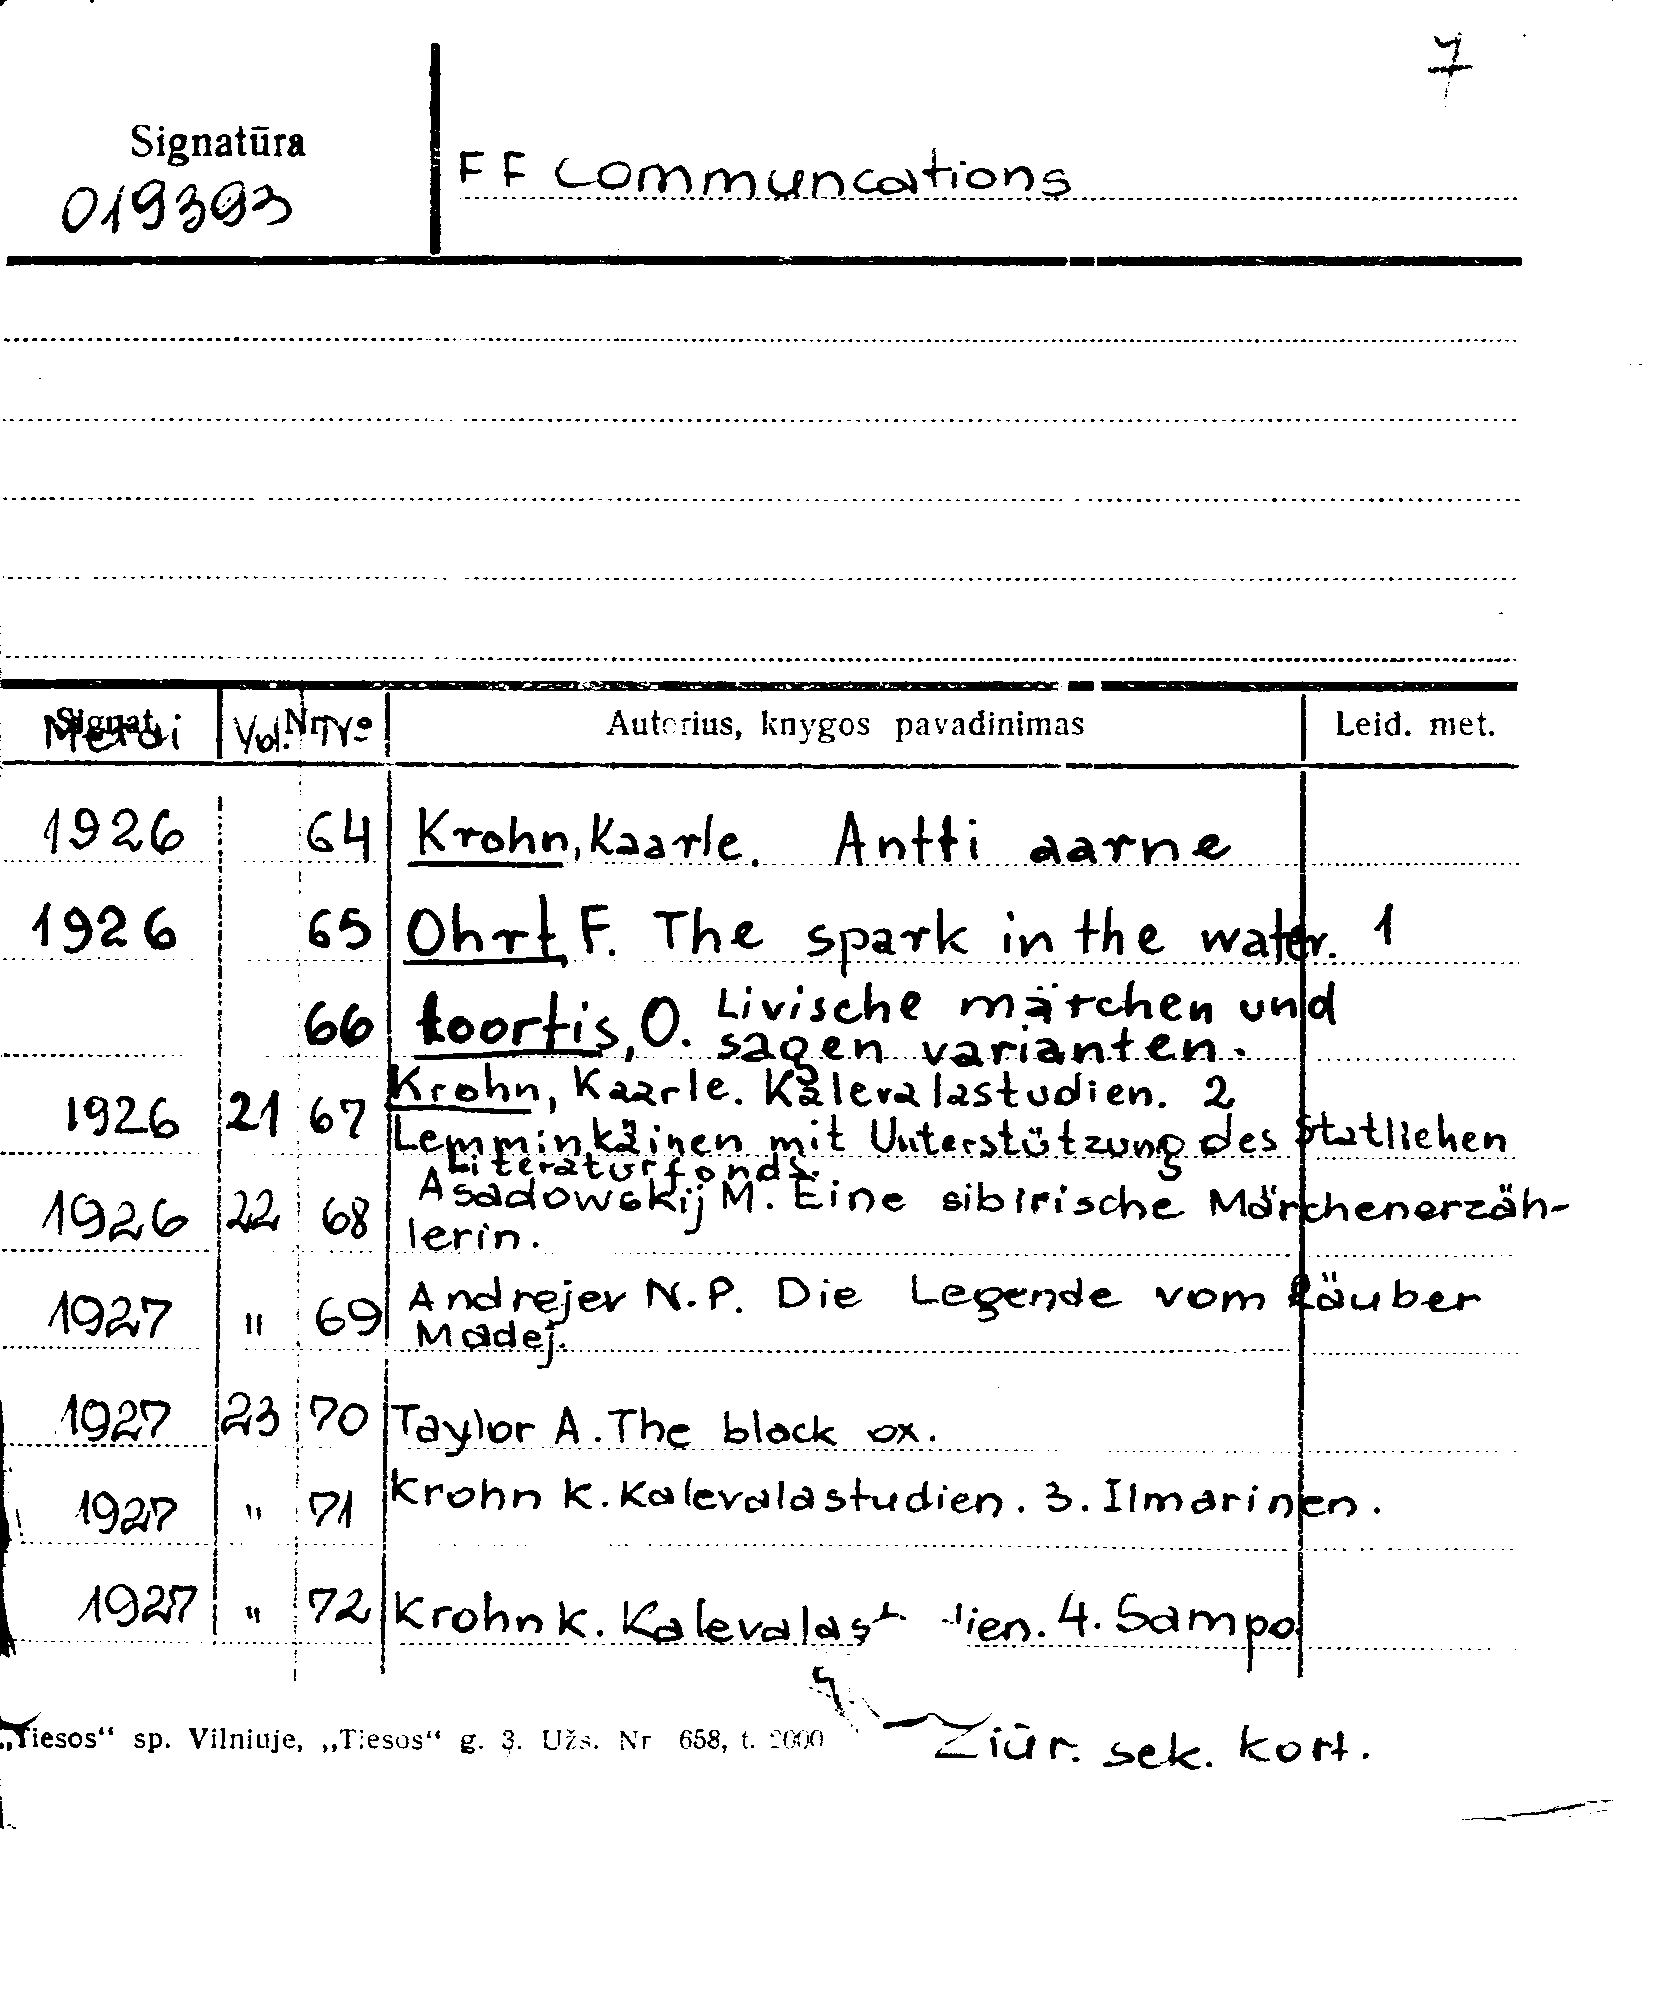 7
Signatūra
019393
F F Communcations
Signat. Nr.
Metai Vol. No Autorius, knygos pavadinimas Leid. met.
1926 64 Krohn, Kaarle. Antti aarne
1926 65 Ohrt, F. The spark in the water. 1
66 Loortis, O. Livische märchen und
sagen varianten.
1926 21 67 Krohn, Kaarle. Kalevalastudien. 2
Lemminkäinen mit Unterstützung des Statlichen
Literaturfonds.
1926 22 68 Asadowskij M. Eine sibirische Märchenerzäh-
lerin.
1927 " 69 Andrejev N.P. Die Legende vom Räuber
Madej.
1927 23 70 Taylor A. The black ox.
1927 " 71 Krohn K. Kalevalastudien. 3. Ilmarinen.
1927 " 72 Krohn K. 4. Sampo
„Tiesos“ sp. Vilniuje, „Tiesos“ g. 3. Užs. Nr 658, t. 2000
Žiūr. sek. kort.